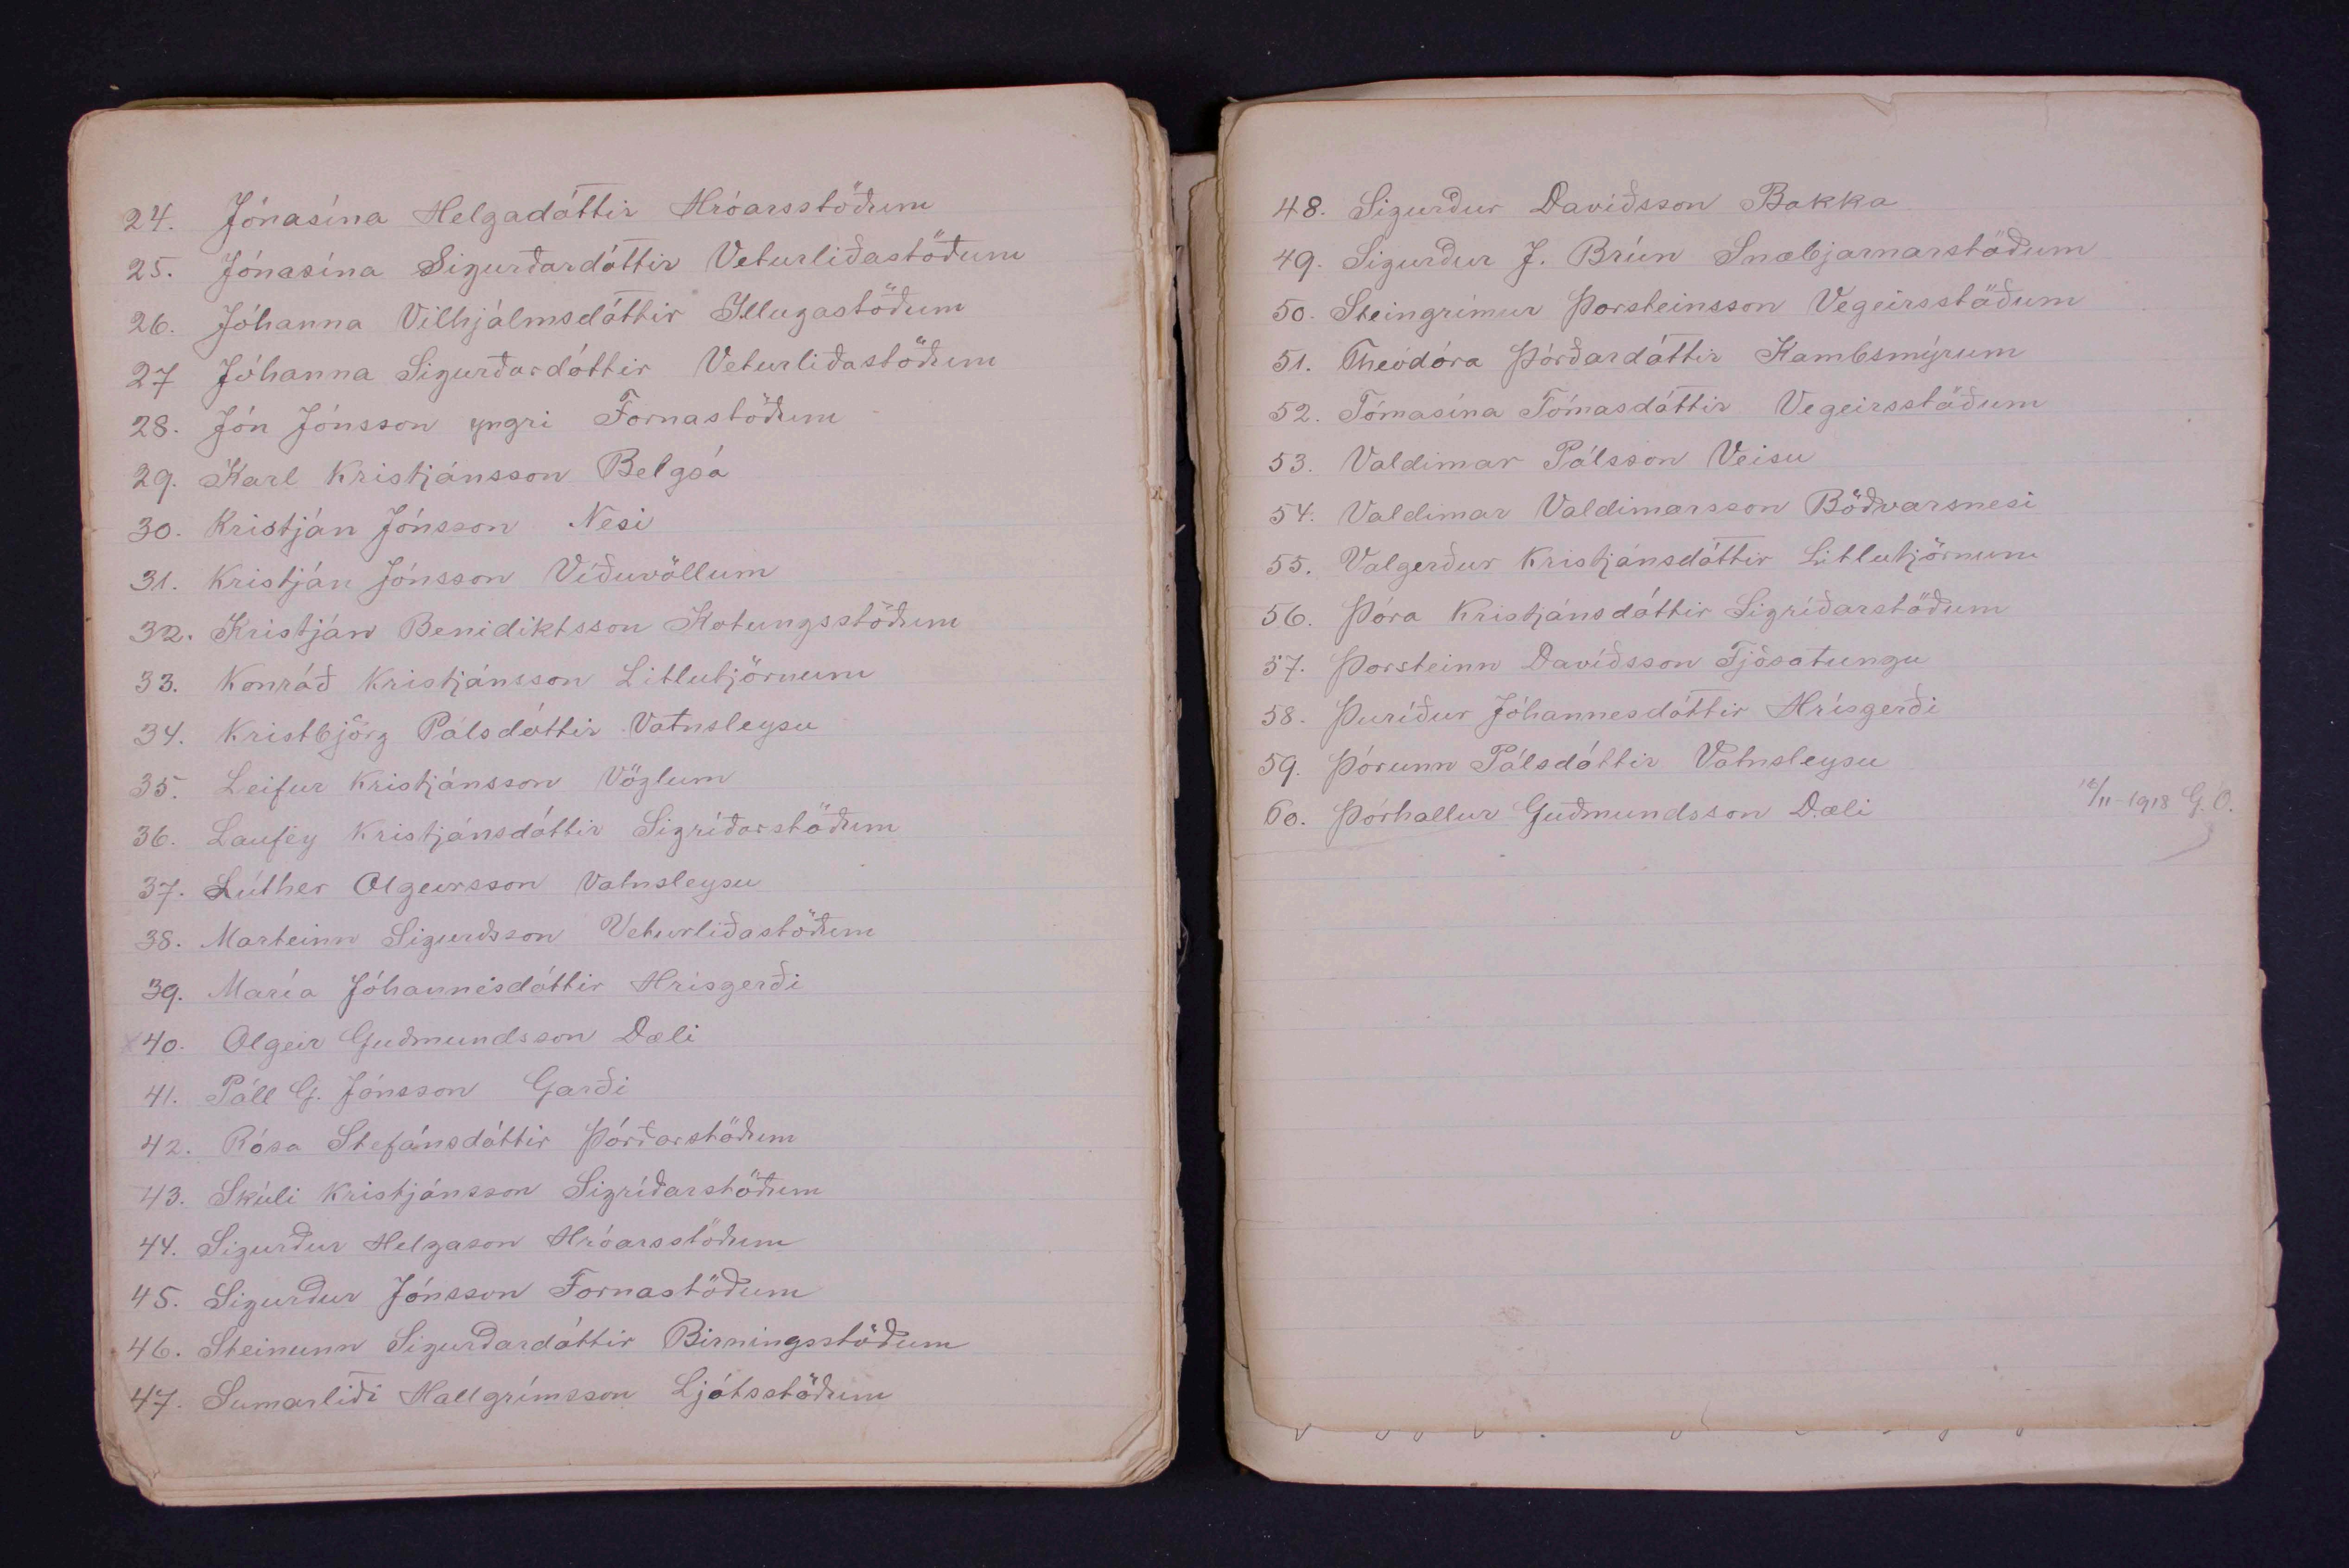 24. Jónasína Helgadóttir Hróarsstöðum
25. Jónasína Sigurðardóttir Veturliðastöðum
26. Jóhanna Vilhjálmsdóttir Illugastöðum
27 Jóhanna Sigurðardóttir Veturliðastöðum
28. Jón Jónsson yngri Fornastöðum
29. Karl Kristjánsson Belgsá
30. Kristján Jónsson Nesi
31. Kristján Jónsson Víðuvöllum
32. Kristján Benidiktsson Kotungsstöðum
33. Konráð Kristjánsson Litlutjörnum
34. Kristbjörg Pálsdóttir Vatnsleysu
35. Leifur Kristjánsson Vöglum
36. Laufey Kristjánsdóttir Sigríðarstöðum
37. Lúther Olgeirsson Vatnsleysu
38. Marteinn Sigurðsson Veturliðastöðum
39. María Jóhannesdóttir Hrísgerði
40. Olgeir Guðmundsson Dæli
41. Páll G. Jónsson Garði
42. Rósa Stefánsdóttir Þórðarstöðum
43. Skúli Kristjánsson Sigríðarstöðum
44. Sigurður Helgason Hróarsstöðum
45. Sigurður Jónsson Fornastöðum
46. Steinunn Sigurðardóttir Birningsstöðum
47. Sumarliði Hallgrímsson Ljótsstöðum
48. Sigurður Davíðsson Bakka
49. Sigurður J. Brún Snæbjarnarstöðum
50. Steingrímur Þorsteinsson Vegeirsstöðum
51. Theódóra Þórðardóttir Kambsmýrum
52. Tómasína Tómasdóttir Vegeirsstöðum
53. Valdimar Pálsson Veisu
54. Valdimar Valdimarsson Böðvarsnesi
55. Valgerður Kristjánsdóttir Litlutjörnum
56. Þóra Kristjánsdóttir Sigríðarstöðum
57. Þorsteinn Davíðsson Fjósatungu
58. Þuríður Jóhannesdóttir Hrísgerði
59. Þórunn Pálsdóttir Vatnsleysu
60. Þórhallur Guðmundsson Dæli
/11-1918 G.Ó.